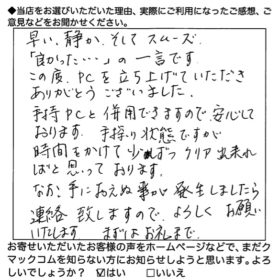 ◆当店をお選びいただいた理由、実際にご利用になったご感想、ご
意見などをお聞かせください。
早い、静か、そしてスムーズ.
「助かった…」の一言です.
この度、PCを立ち上げていただき
ありがとうございました.
手持PCと併用できますので、安心して
おります. 手探り状態ですが
時間をかけて少しずつクリア出来れ
ばと思っております.
なお、手におえぬ事が発生しましたら
連絡致しますので、よろしくお願い
いたします. まずはお礼まで.
お寄せいただいたお客様の声をホームページなどで、まだク
マックコムを知らない方にお知らせしようと思います。よろ
しいでしょうか? ☑はい □いいえ